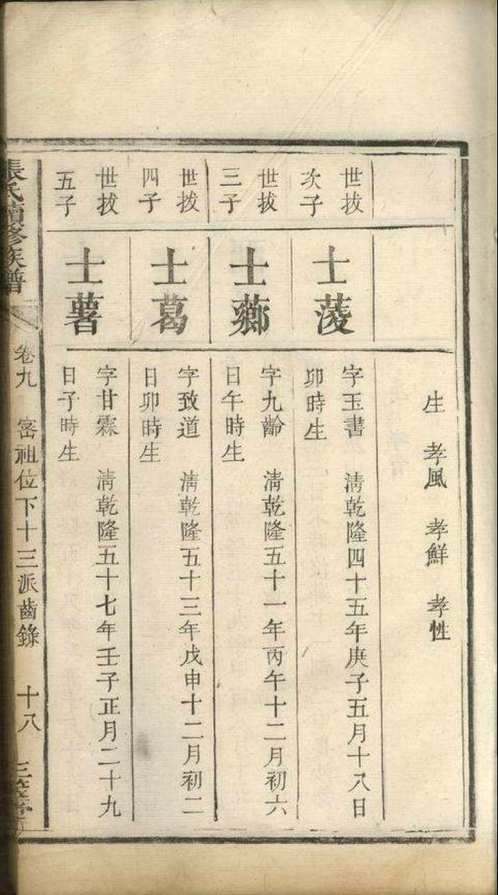 生 孝風 孝鮮 孝性
世拔
次子
士蔆
字玉書 清乾隆四十五年庚子五月十八日
卯時生
世拔
三子
士薌
字九齡 清乾隆五十一年丙午十二月初六
日午時生
世拔
四子
士葛
字致道 清乾隆五十三年戊申十二月初二
日卯時生
世拔
五子
士薯
字甘霖 清乾隆五十七年壬子正月二十九
日子時生
張氏續修族譜 卷九 密祖位下十三派齒錄 十八